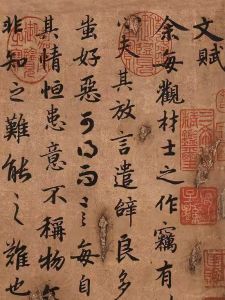 文賦
余每觀材士之作竊有
心夫其放言遣辭良多
蚩好惡可得而言每自
其情恒患意不稱物文
非知之難能之難也